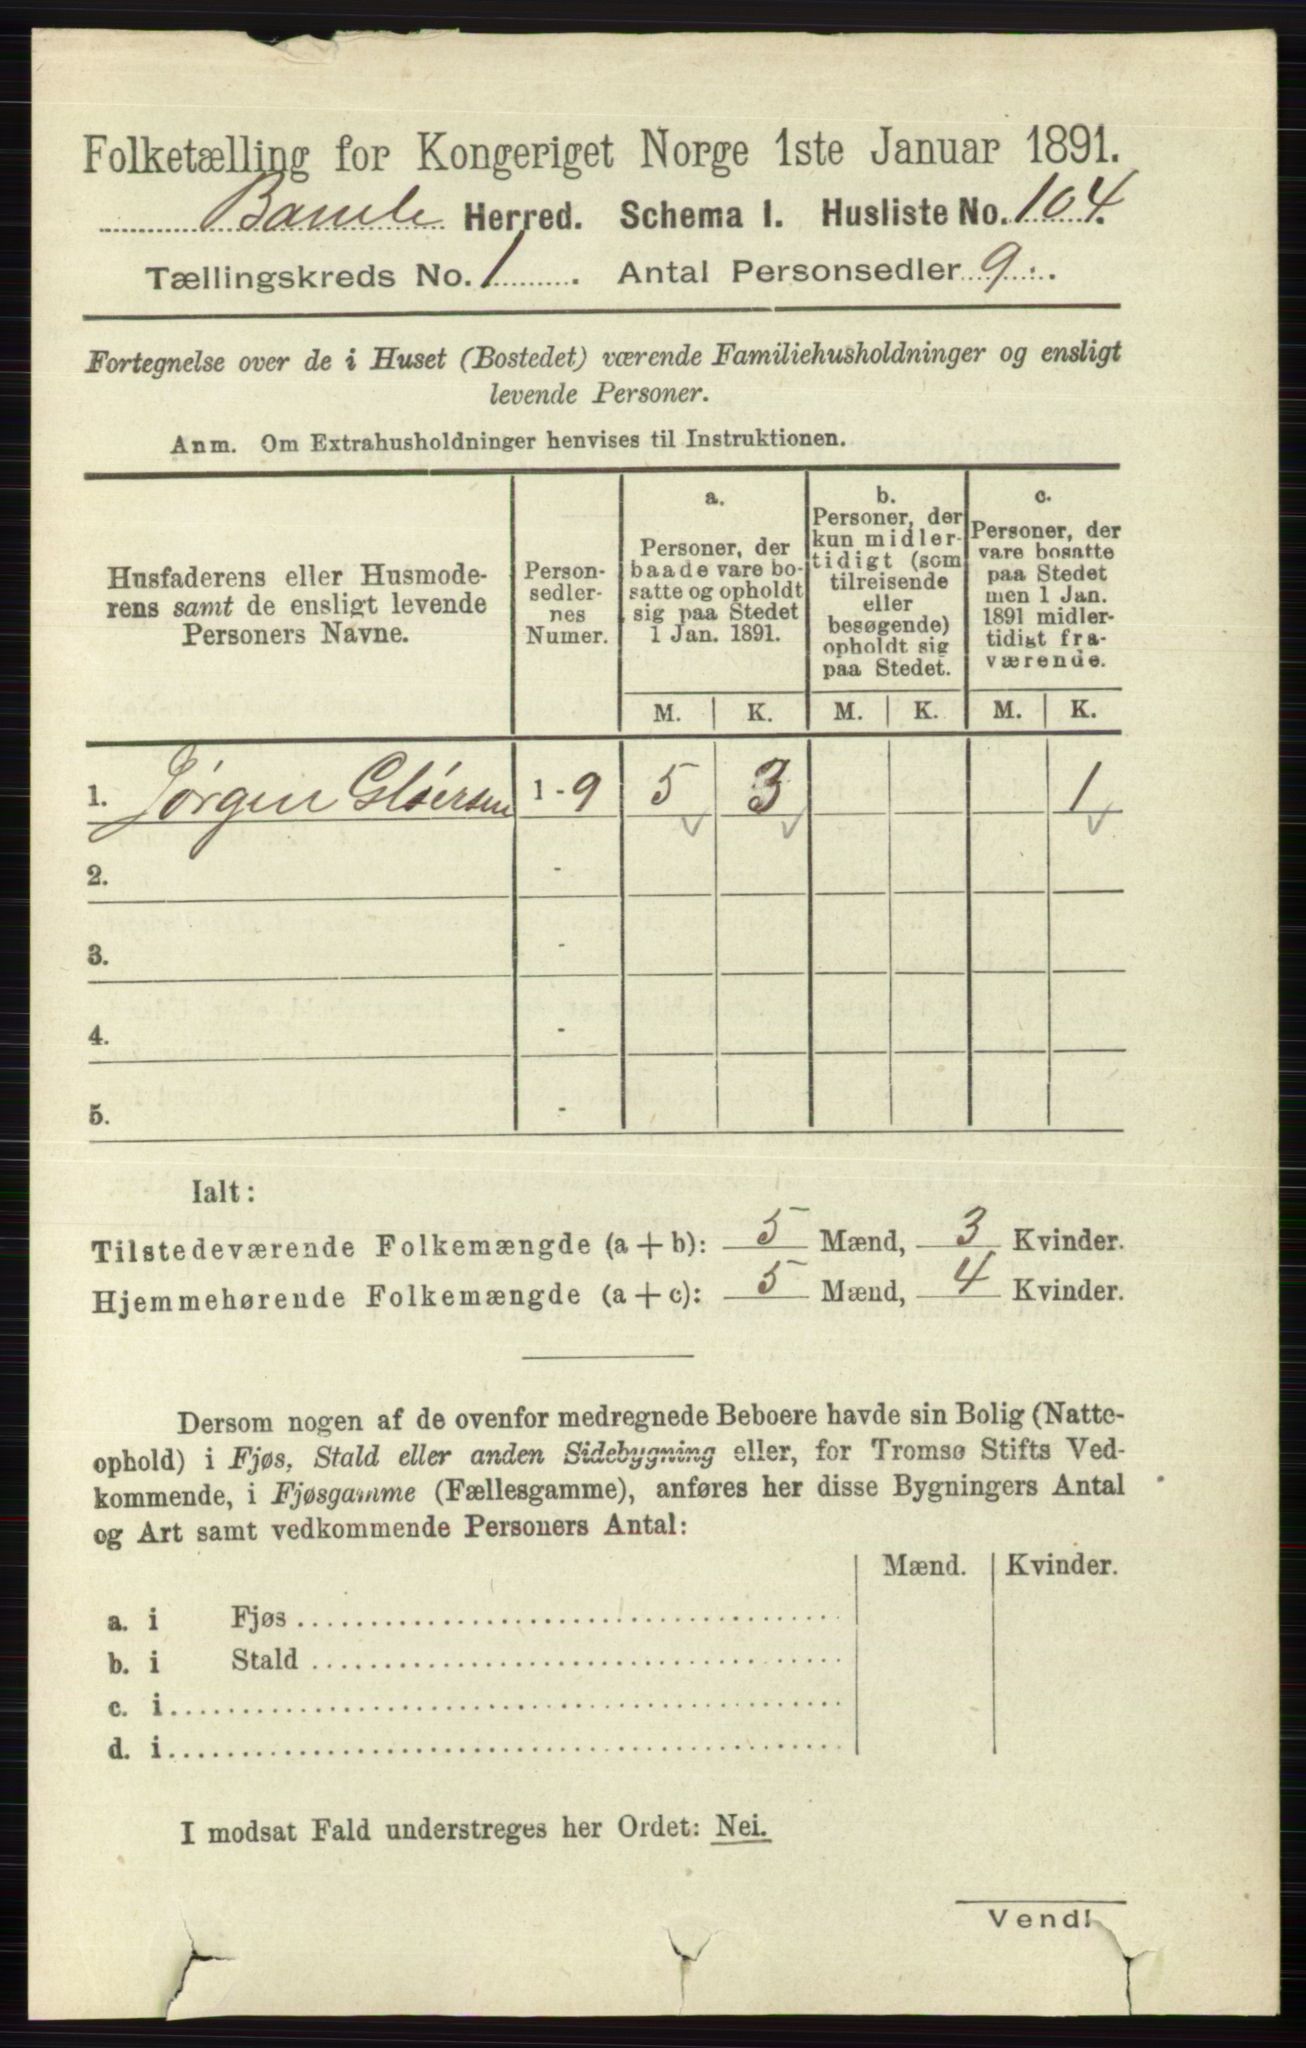 Folketælling for Kongeriget Norge 1ste Januar 1891.
Bamle Herred. Schema I. Husliste No. 104.
Tællingskreds No. 1. Antal Personsedler 9.
Fortegnelse over de i Huset (Bostedet) værende Familiehusholdninger og ensligt
levende Personer.
Anm. Om Extrahusholdninger henvises til Instruktionen.
Husfaderens eller Husmode-
rens samt de ensligt levende
Personers Navne.
Person-
sedler-
nes
Numer.
a.
Personer, der
baade vare bo-
satte og opholdt
sig paa Stedet
1 Jan. 1891.
b.
Personer, der
kun midler-
tidigt (som
tilreisende
eller
besøgende)
opholdt sig
paa Stedet.
c.
Personer, der
vare bosatte
paa Stedet
men 1 Jan.
1891 midler-
tidigt fra-
værende.
M. K. M. K. M. K.
1. Jørgen Gløersen 1 - 9 5 3 1
2. -
3. -
4. -
5. -
Ialt:
Tilstedeværende Folkemængde (a + b): 5 Mænd, 3 Kvinder.
Hjemmehørende Folkemængde (a + c): 5 Mænd, 4 Kvinder.
Dersom nogen af de ovenfor medregnede Beboere havde sin Bolig (Natte-
ophold) i Fjøs, Stald eller anden Sidebygning eller, for Tromsø Stifts Ved-
kommende, i Fjøsgamme (Fællesgamme), anføres her disse Bygningers Antal
og Art samt vedkommende Personers Antal:
Mænd. Kvinder.
a. i Fjøs
b. i Stald
c. i
d. i
I modsat Fald understreges her Ordet: Nei.
Vend!